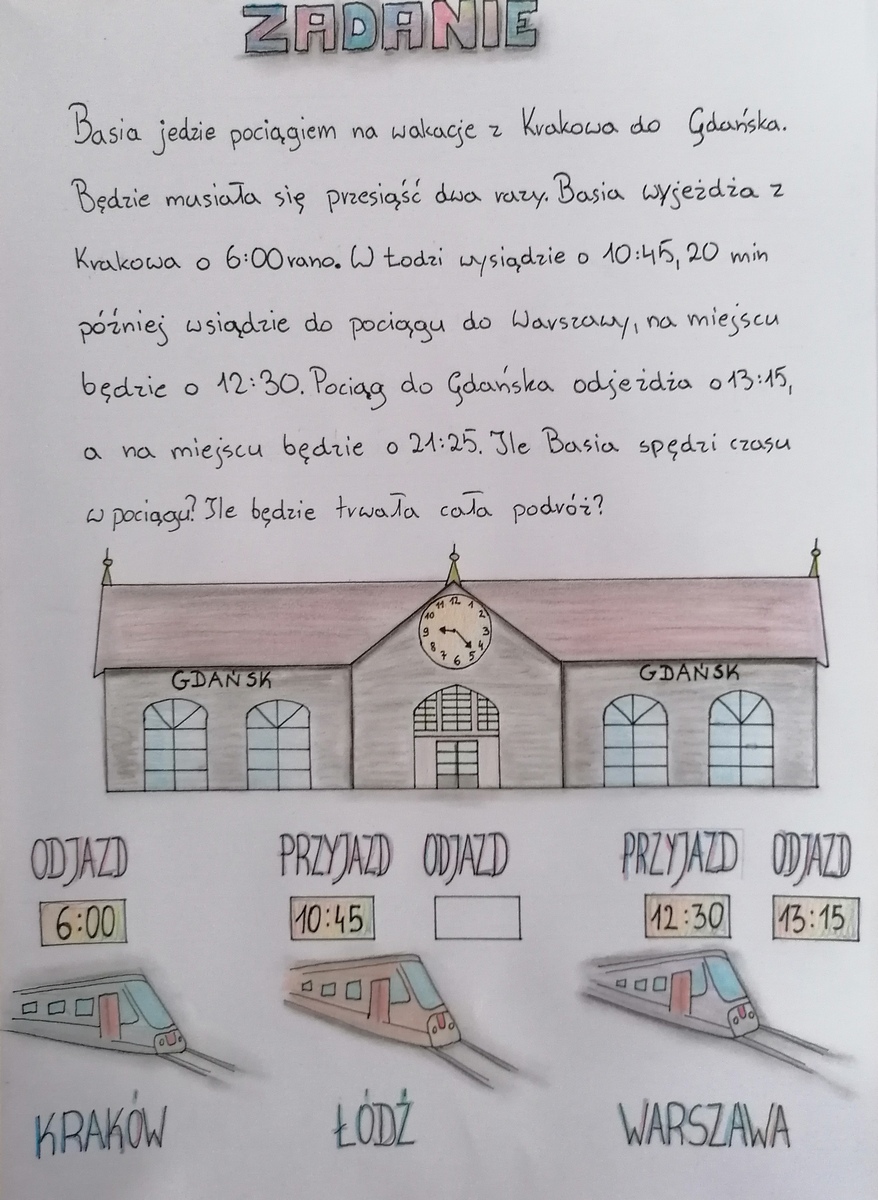 ZADANIE
Basia jedzie pociągiem na wakacje z Krakowa do Gdańska.
Będzie musiała się przesiąść dwa razy. Basia wyjeżdża z
Krakowa o 6:00 rano. W Łodzi wysiądzie o 10:45, 20 min
później wsiądzie do pociągu do Warszawy, na miejscu
będzie o 12:30. Pociąg do Gdańska odjeżdża o 13:15,
a na miejscu będzie o 21:25. Ile Basia spędzi czasu
w pociągu? Ile będzie trwała cała podróż?
12 1 2 3 4 5 6 7 8 9 10 11
GDAŃSK GDAŃSK
ODJAZD PRZYJAZD ODJAZD PRZYJAZD ODJAZD
6:00 10:45 12:30 13:15
KRAKÓW ŁÓDŹ WARSZAWA